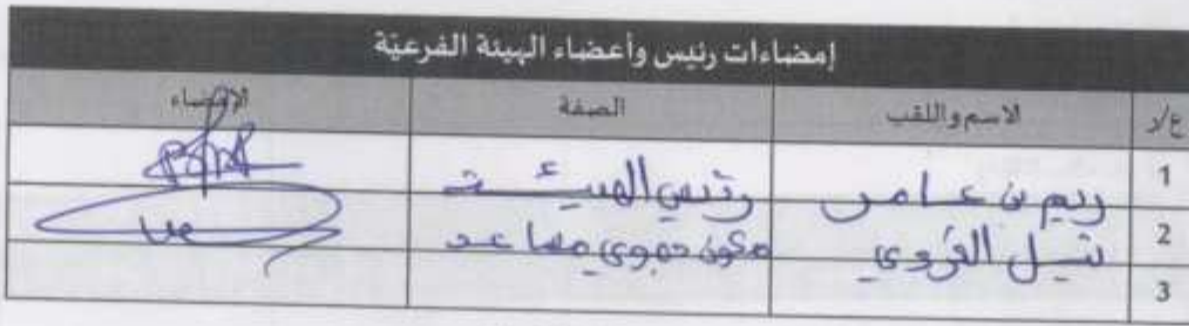 إمضاءات رئيس وأعضاء الهيئة الفرعيّة
ع/د الاسم واللقب الصفة الإمضاء
1 ريم بن عامر رئيس الهيئة
2 نبيل القروي مكون جهوي مساعد
3